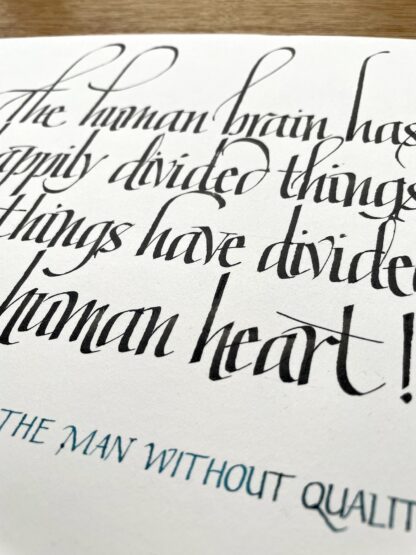 The human brain has
appily divided things
things have divided
human heart!
THE MAN WITHOUT QUALIT